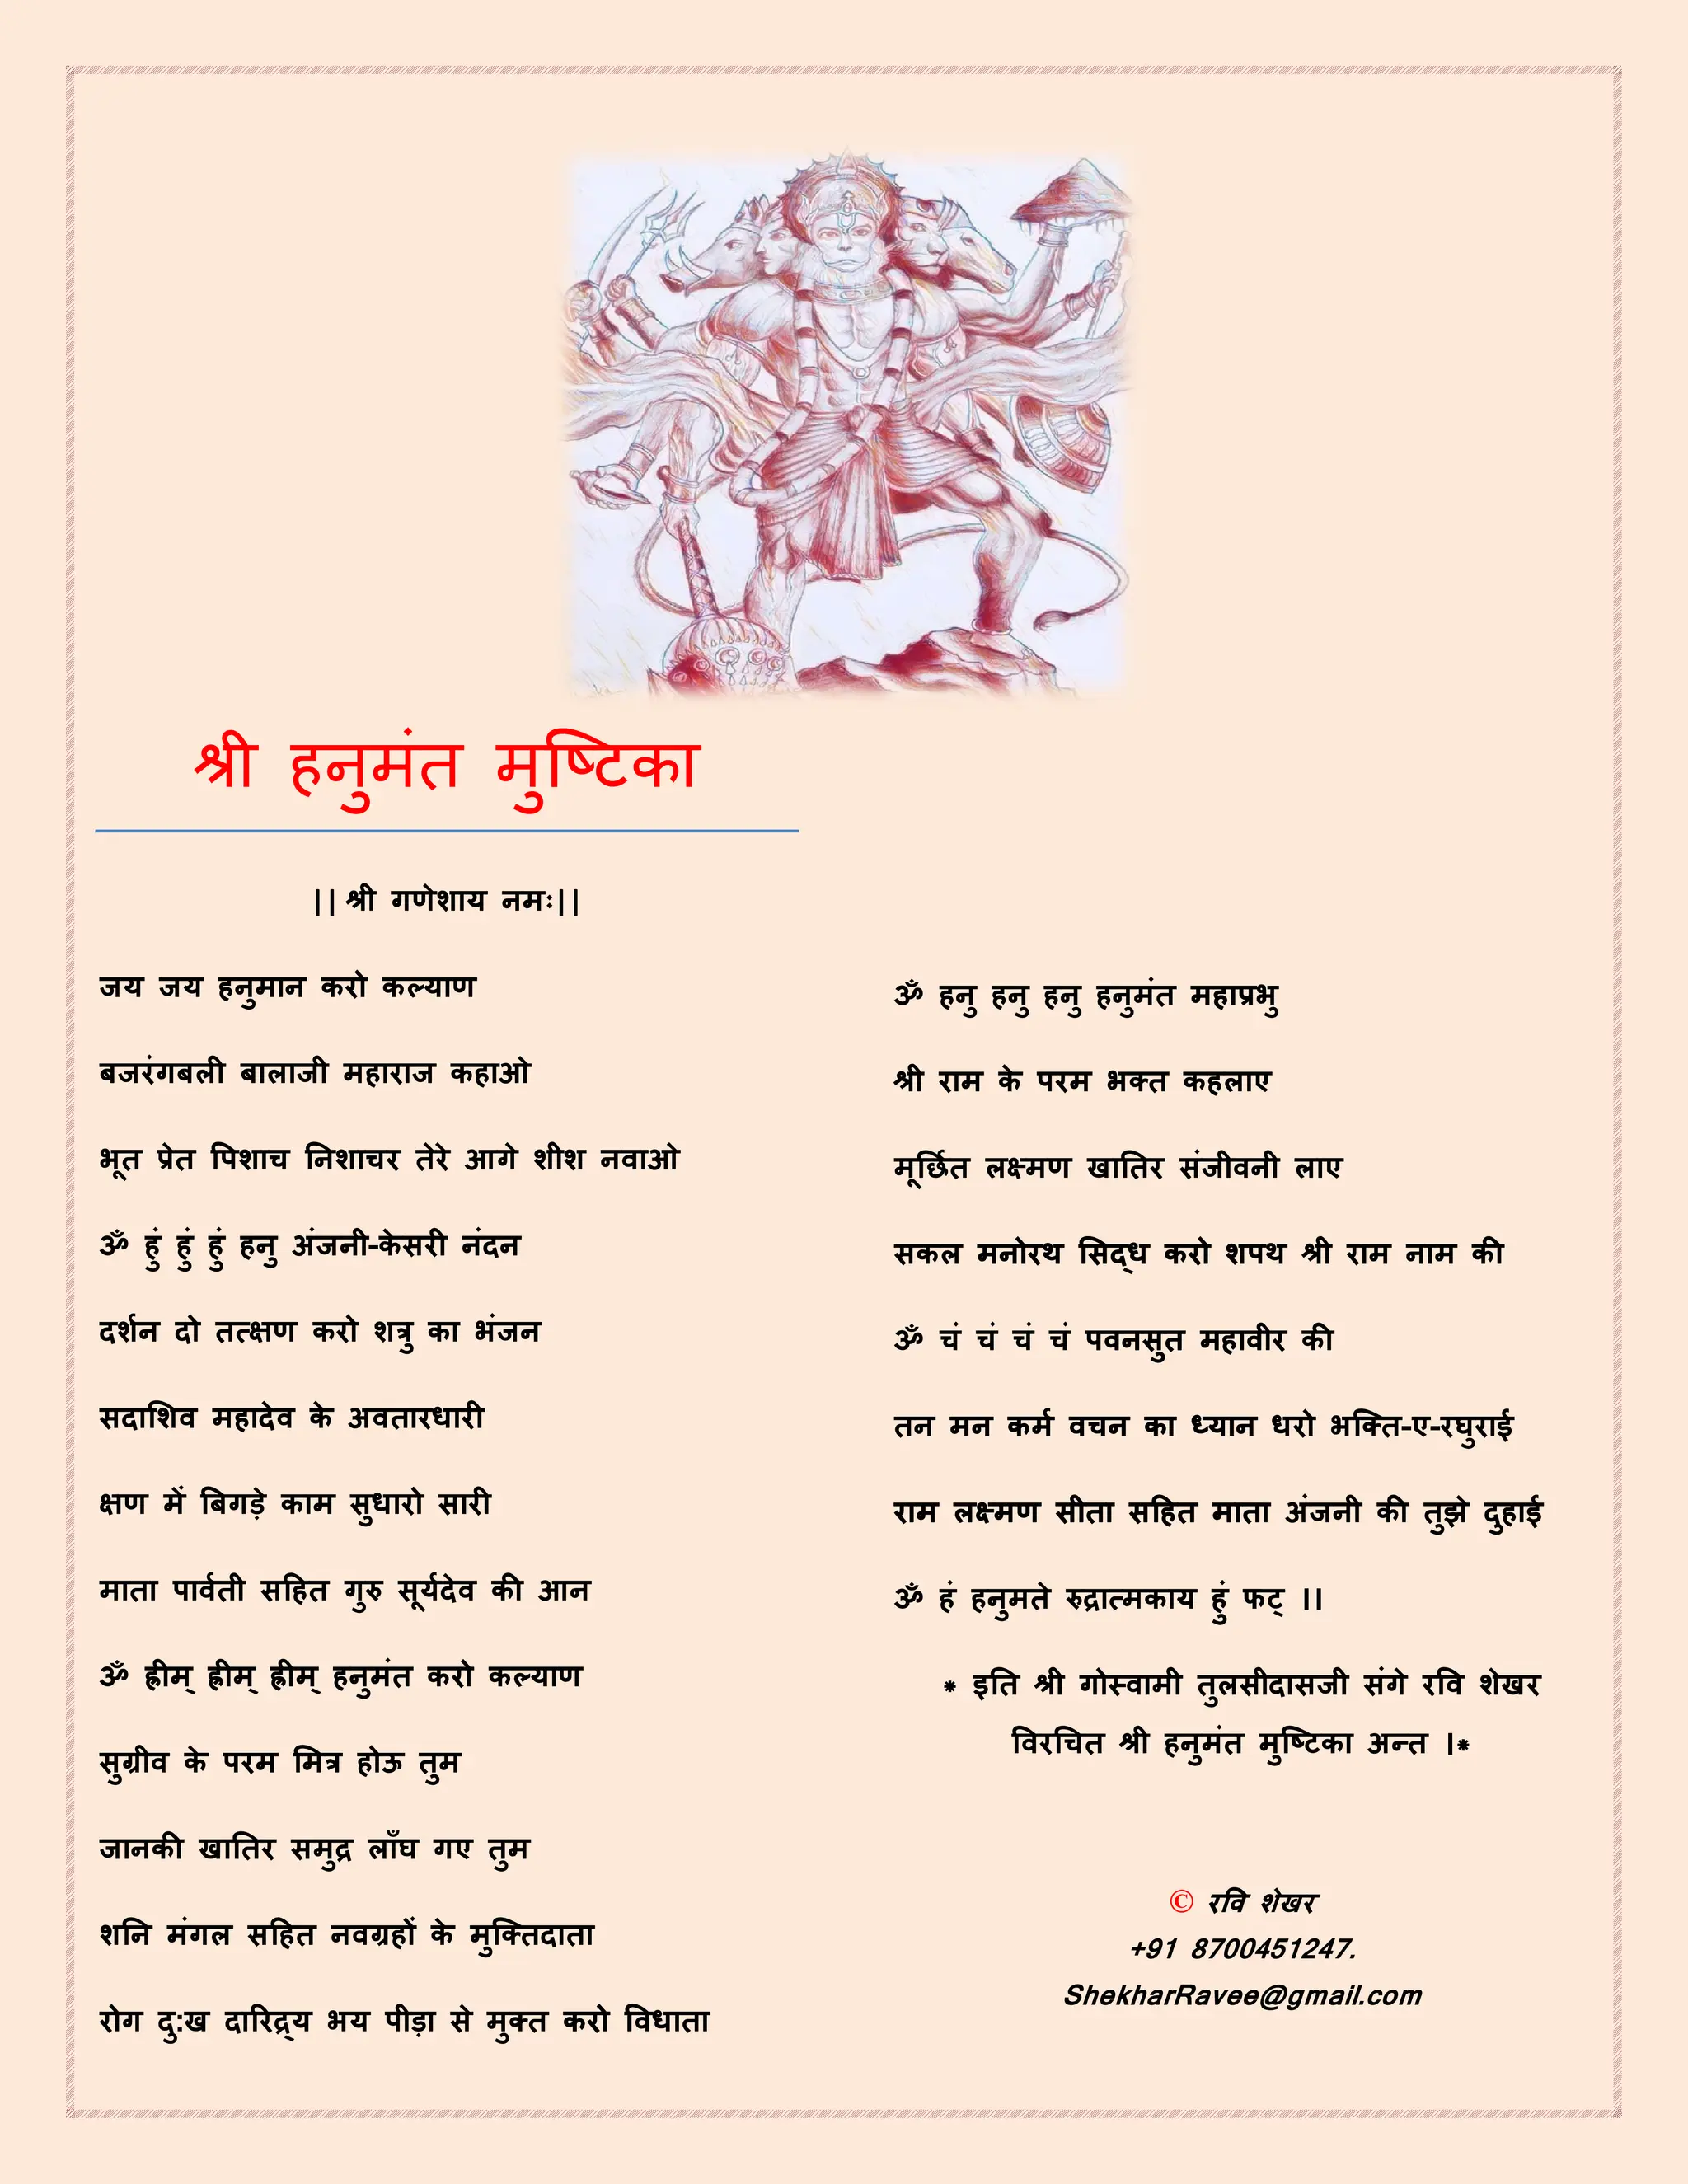 श्री हनुमंत मुष्टिका
||श्री गणेशाय नमः||
जय जय हनुमान करो कल्याण
बजरंगबली बालाजी महाराज कहाओ
भूत प्रेत पिशाच निशाचर तेरे आगे शीश नवाओ
ॐ हुं हुं हुं हनु अंजनी-केसरी नंदन
दर्शन दो तत्क्षण करो शत्रु का भंजन
सदाशिव महादेव के अवतारधारी
क्षण में बिगड़े काम सुधारो सारी
माता पार्वती सहित गुरु सूर्यदेव की आन
ॐ ह्रीम् ह्रीम् ह्रीम् हनुमंत करो कल्याण
सुग्रीव के परम मित्र होऊ तुम
जानकी खातिर समुद्र लाँघ गए तुम
शनि मंगल सहित नवग्रहों के मुक्तिदाता
रोग दु:ख दारिद्र्य भय पीड़ा से मुक्त करो विधाता
ॐ हनु हनु हनु हनुमंत महाप्रभु
श्री राम के परम भक्त कहलाए
मूर्छित लक्ष्मण खातिर संजीवनी लाए
सकल मनोरथ सिद्ध करो शपथ श्री राम नाम की
ॐ चं चं चं चं पवनसुत महावीर की
तन मन कर्म वचन का ध्यान धरो भक्ति-ए-रघुराई
राम लक्ष्मण सीता सहित माता अंजनी की तुझे दुहाई
ॐ हं हनुमते रुद्रात्मकाय हुं फट् ।।
* इति श्री गोस्वामी तुलसीदासजी संगे रवि शेखर
विरचित श्री हनुमंत मुष्टिका अन्त ।*
© रवि शेखर
+91 8700451247.
ShekharRavee@gmail.com